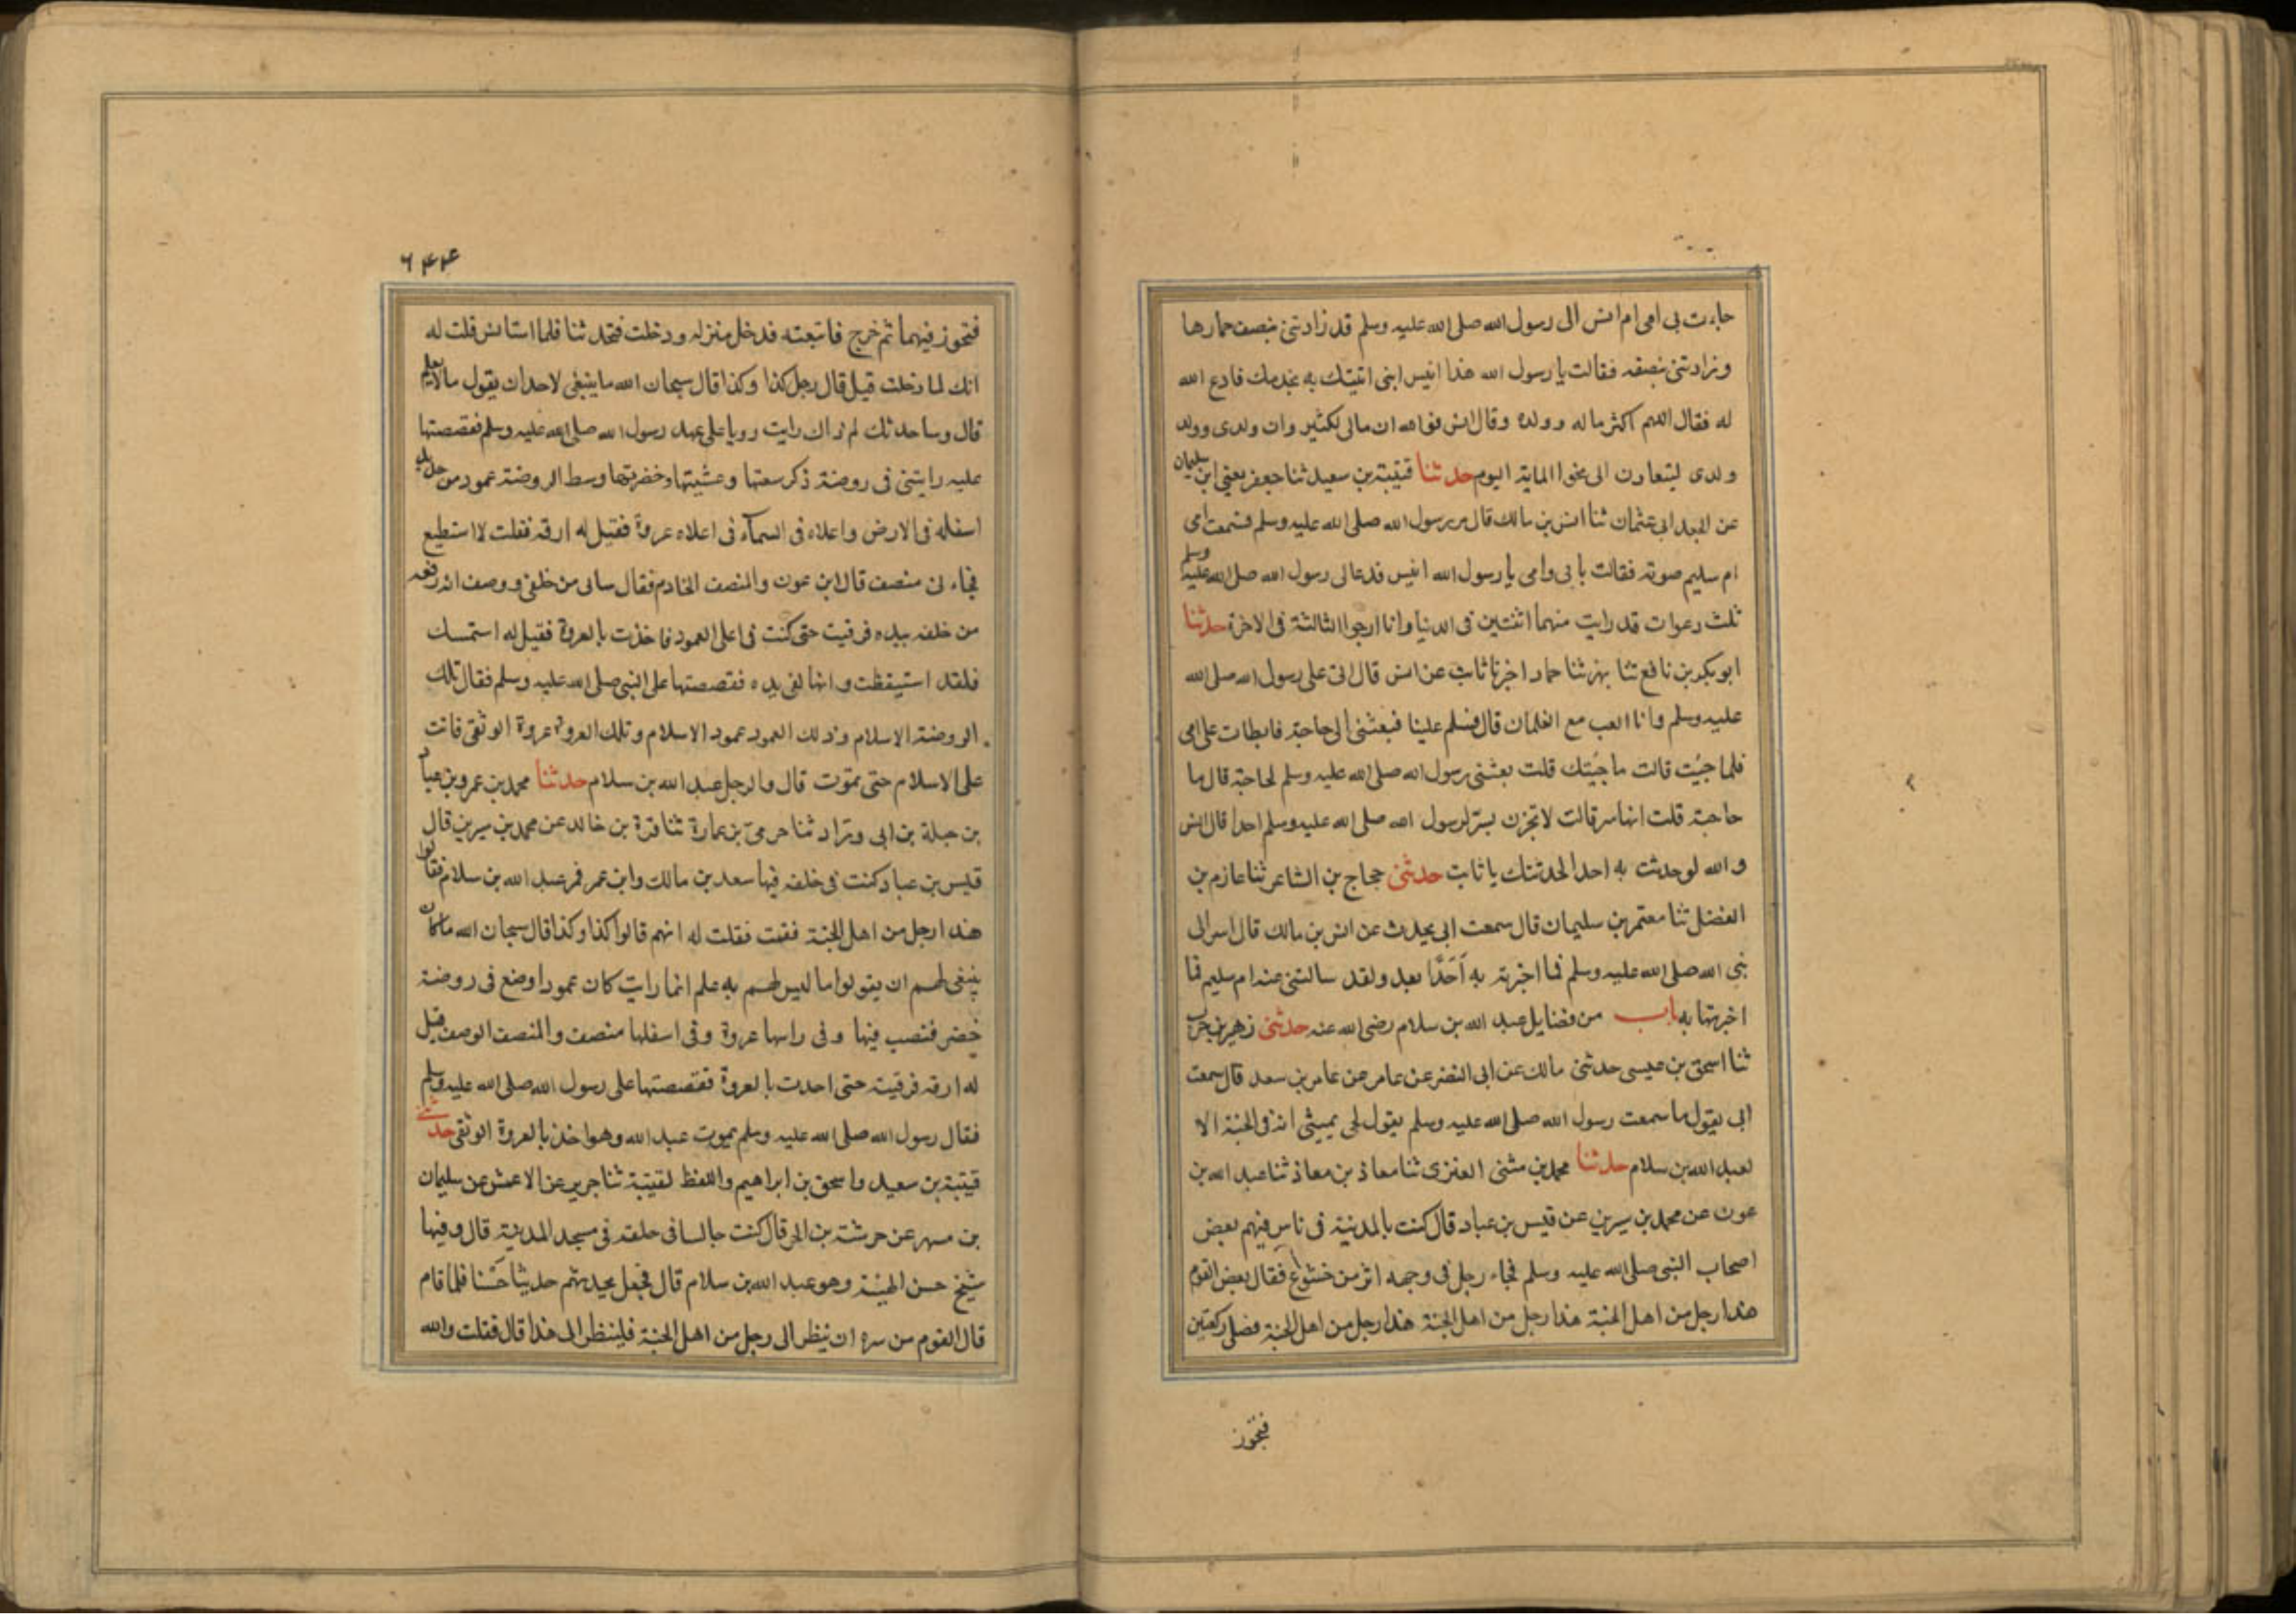 جاءت بى امى ام انس الى رسول الله صلى الله عليه وسلم قد زادتنى بنصف خمارها
وزادتنى بنصفه فقالت يا رسول الله هذا انيس ابنى اتيتك به يخدمك فادع الله
له فقال اللهم اكثر ماله وولده وقال انس فوالله ان مالى لكثير وان ولدى وولد
ولدى ليتعادون الى نحوا الماية اليوم حدثنا قتيبة بن سعيد ثنا جعفر يعنى ابن سليمان
عن الجعد ابى عثمان ثنا انس بن مالك قال مر رسول الله صلى الله عليه وسلم فسمعت امى
ام سليم صوته فقالت بابى وامى يا رسول الله انيس فدعا لى رسول الله صلى الله عليه وسلم
ثلث دعوات قد رايت منهما اثنتين فى الدنيا وانا ارجوا الثالثة فى الاخرة حدثنا
ابو بكر بن نافع ثنا بهز ثنا حماد اخبرنا ثابت عن انس قال اتى على رسول الله صلى الله
عليه وسلم وانا العب مع الغلمان قال فسلم علينا فبعثنى الى حاجة فابطات على امى
فلما جيت قالت ما حبستك قلت بعثنى رسول الله صلى الله عليه وسلم لحاجة قال ما
حاجته قلت انها سر قالت لا تخبرن بسر لرسول الله صلى الله عليه وسلم احدا قال انس
والله لو حدثت به احدا لحدثتك يا ثابت حدثنى حجاج بن الشاعر ثنا عازم بن
الفضل ثنا معتمر بن سليمان قال سمعت ابى يحدث عن انس بن مالك قال اسر الى
نبى الله صلى الله عليه وسلم فما اخبرته به اَحَدًا بعد ولقد سالتنى عنه ام سليم فما
اخبرتها به باب من فضايل عبد الله بن سلام رضى الله عنه حدثنى زهير بن حرب
ثنا اسحق بن عيسى حدثنى مالك عن ابى النضر عن عامر عن عامر بن سعد قال سمعت
ابى يقول ما سمعت رسول الله صلى الله عليه وسلم يقول لحى يمشى انه فى الجنة الا
لعبد الله بن سلام حدثنا محمد بن مثنى العنزى ثنا معاذ بن معاذ ثنا عبد الله بن
عون عن محمد بن سيرين عن قيس بن عباد قال كنت بالمدينة فى ناس فيهم بعض
اصحاب النبى صلى الله عليه وسلم فجاء رجل فى وجهه اثر من خشوع فقال بعض القوم
هذا رجل من اهل الجنة هذا رجل من اهل الجنة هذا رجل من اهل الجنة فصلى ركعتين
فتجوز
٦٤٤
فتجوز فيهما ثم خرج فاتبعته فدخل منزله ودخلت فتحدثنا فلما استانس قلت له
انك لما دخلت قيل قال رجل كذا وكذا قال سبحان الله ما ينبغى لاحد ان يقول ما لا يعلم
قال وساحدثك لم ذاك رايت رويا على عهد رسول الله صلى الله عليه وسلم فقصصتها
عليه رايتنى فى روضة ذكر سعتها وعشبتها وخضرتها وسط الروضة عمود من حديد
اسفله فى الارض واعلاه فى السمآء فى اعلاه عروة فقيل له ارقه فقلت لا استطيع
فجاءنى منصف قال ابن عون والمنصف الخادم فقال بيابى من خلفى ووصف انه رفعه
من خلفه بيده فرقيت حتى كنت فى اعلى العمود فاخذت بالعروة فقيل له استمسك
فلقد استيقظت وانها لفى يده فقصصتها على النبى صلى الله عليه وسلم فقال تلك
الروضة الاسلام وذلك العمود عمود الاسلام وتلك العروة عروة الوثقى فانت
على الاسلام حتى تموت قال والرجل عبد الله بن سلام حدثنا محمد بن عمرو بن عباد
بن جبلة بن ابى رواد ثنا حرمى بن عمارة ثنا قرة بن خالد عن محمد بن سيرين قال
قيس بن عباد كنت فى حلقه فيها سعد بن مالك وابن عمر فمر عبد الله بن سلام فقالوا
هذا رجل من اهل الجنة فقمت فقلت له انهم قالوا كذا وكذا قال سبحان الله ما كان
ينبغى لهم ان يقولوا ما ليس لهم به علم انما رايت كان عمودا وضع فى روضة
خضر فنصب فيها وفى راسها عروة وفى اسفلها منصف والمنصف الوصف قيل
له ارقه فرقيته حتى اخذت بالعروة فقصصتها على رسول الله صلى الله عليه وسلم
فقال رسول الله صلى الله عليه وسلم يموت عبد الله وهو اخذ بالعروة الوثقى حدثنى
قتيبة بن سعيد واسحق بن ابراهيم واللفظ لقتيبة ثنا جرير عن الاعمش عن سليمان
بن مسهر عن خرشة بن الحر قال كنت جالسا فى حلقه فى مسجد المدينة قال وفيها
شيخ حسن الهيئة وهو عبد الله بن سلام قال فجعل يحدثهم حديثا حَسَنا فلما قام
قال القوم من سره ان ينظر الى رجل من اهل الجنة فلينظر الى هذا قال فقلت والله